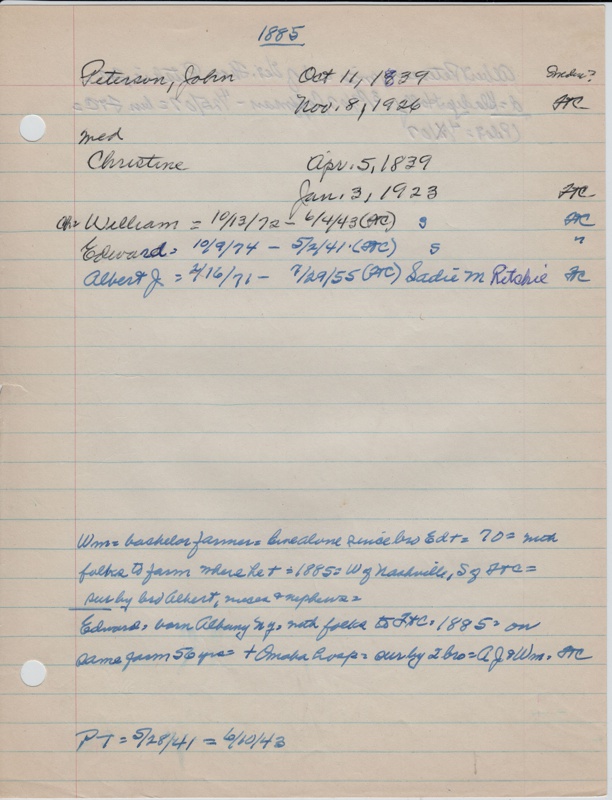 1885
Peterson, John Oct 11, 1839 Index?
Nov. 8, 1926 FtC
med
Christine Apr. 5, 1839
Jan. 3, 1923 FtC
Ch= William = 10/13/72 - 6/4/43 (FtC) s FtC
Edward = 10/9/74 - 5/2/41 (FtC) s "
Albert J. = 2/16/71 - 7/29/55 (FtC) Sadie M Ritchie FtC
Wm = bachelor farmer = lived alone since bro Ed + = 70 = with
folks to farm where he + = 1885 = W of Nashville, S of FtC =
sur by bro Albert, nieces & nephews =
Edward = born Albany N.Y. = with folks to FtC = 1885 = on
same farm 56 yrs = + Omaha hosp = sur by 2 bro = A J & Wm = FtC
PT = 5/28/41 = 6/10/43